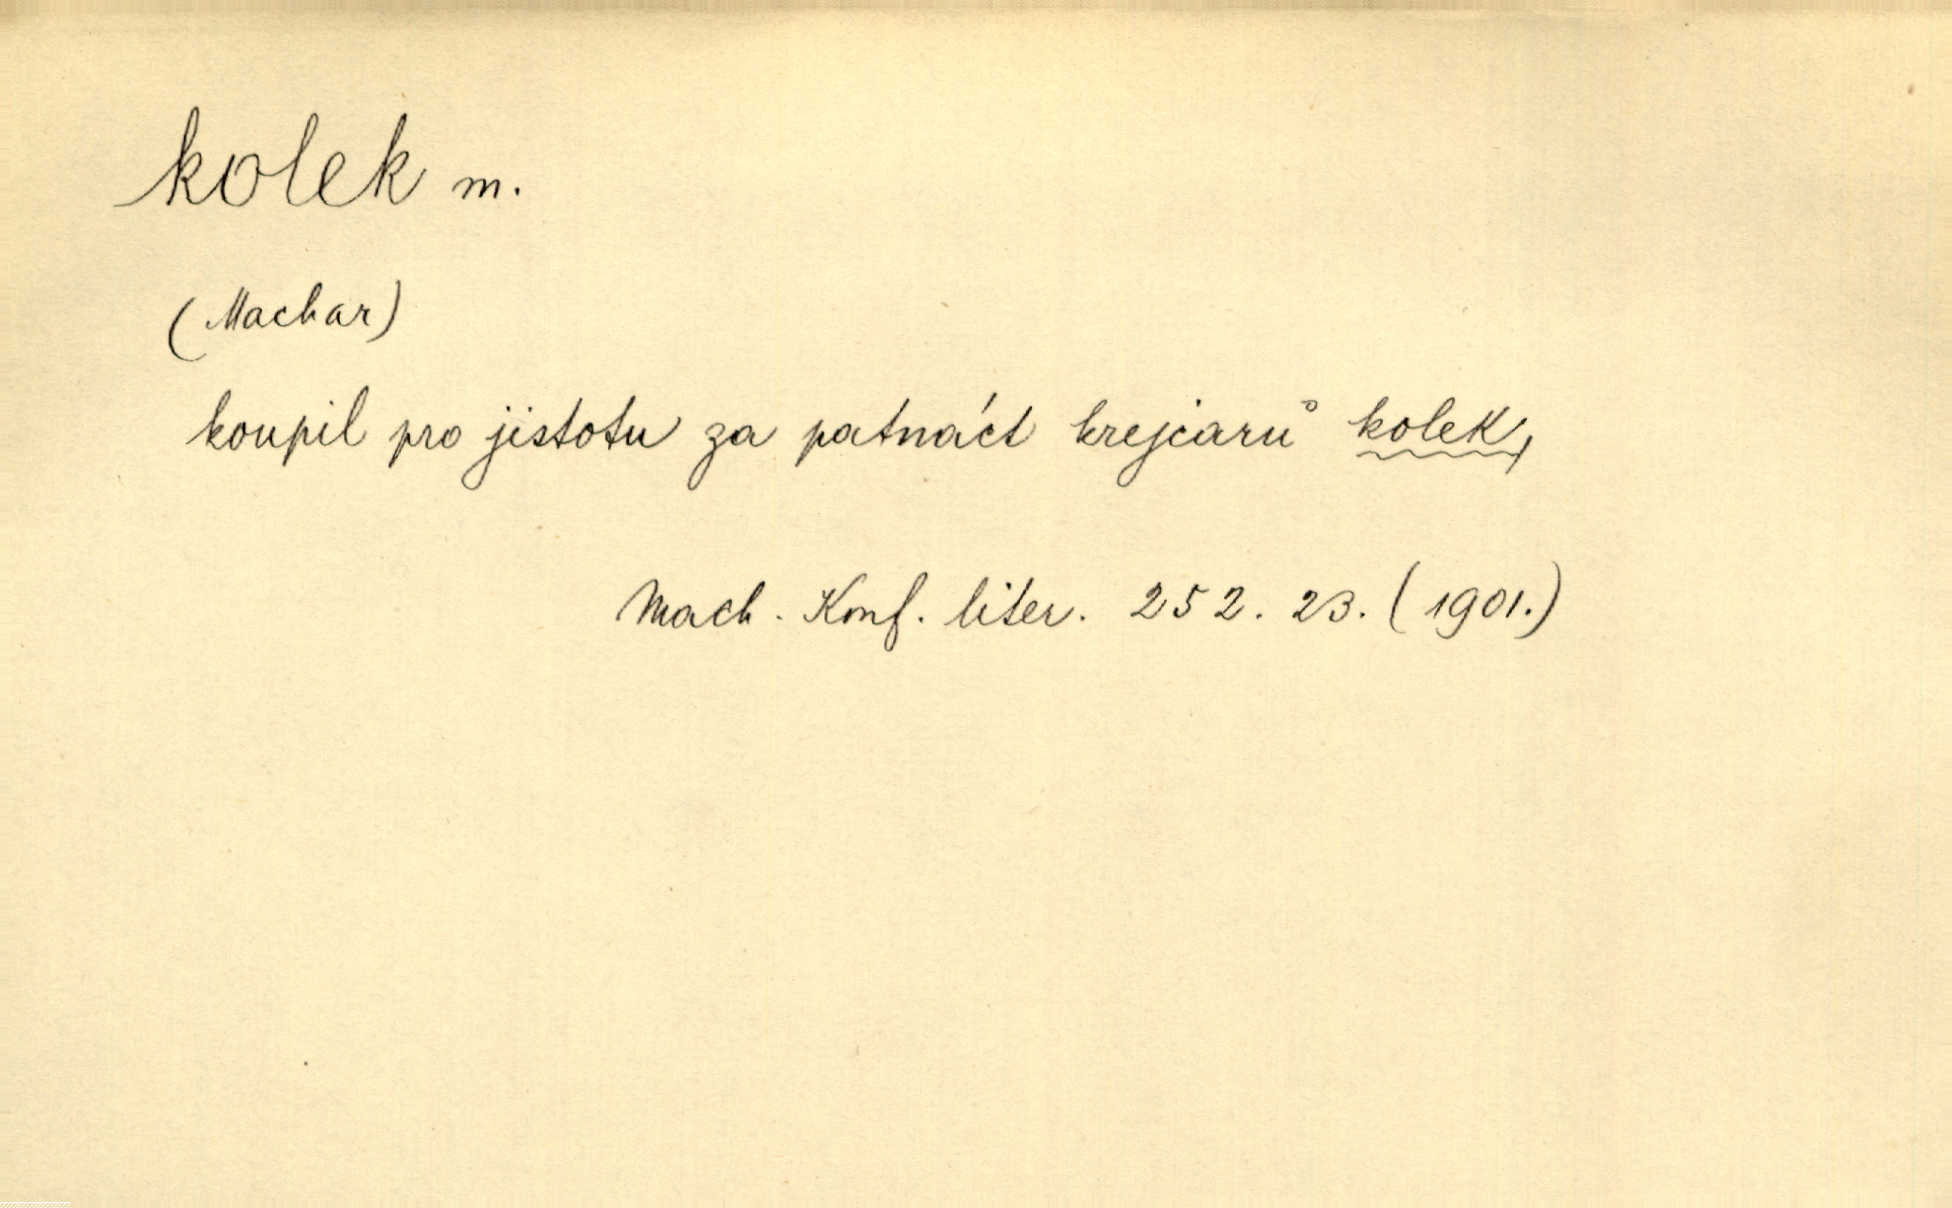 kolek m.
(Machar)
koupil pro jistotu za patnáct krejcarů kolek,
Mach. Konf. liter. 252. 23. (1901.)